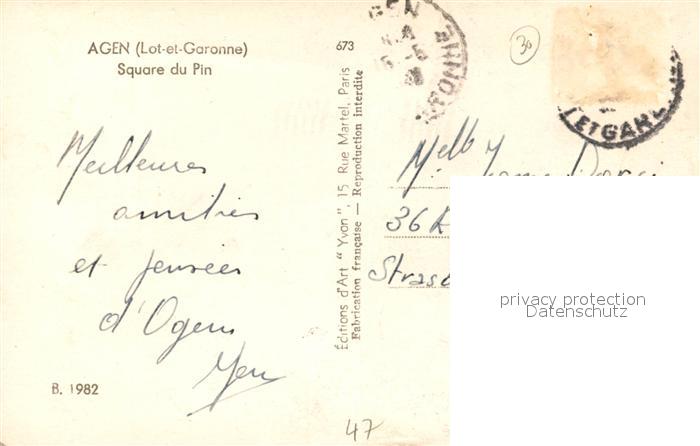 AGEN (Lot-et-Garonne)
Square du Pin
Meilleures
amitiés
et pensées
d'Agen
B. 1982
673
Éditions d'Art "Yvon", 15 Rue Martel, Paris
Fabrication française — Reproduction interdite
47
30
ET GAR
Melle
36
Stras
privacy protection
Datenschutz